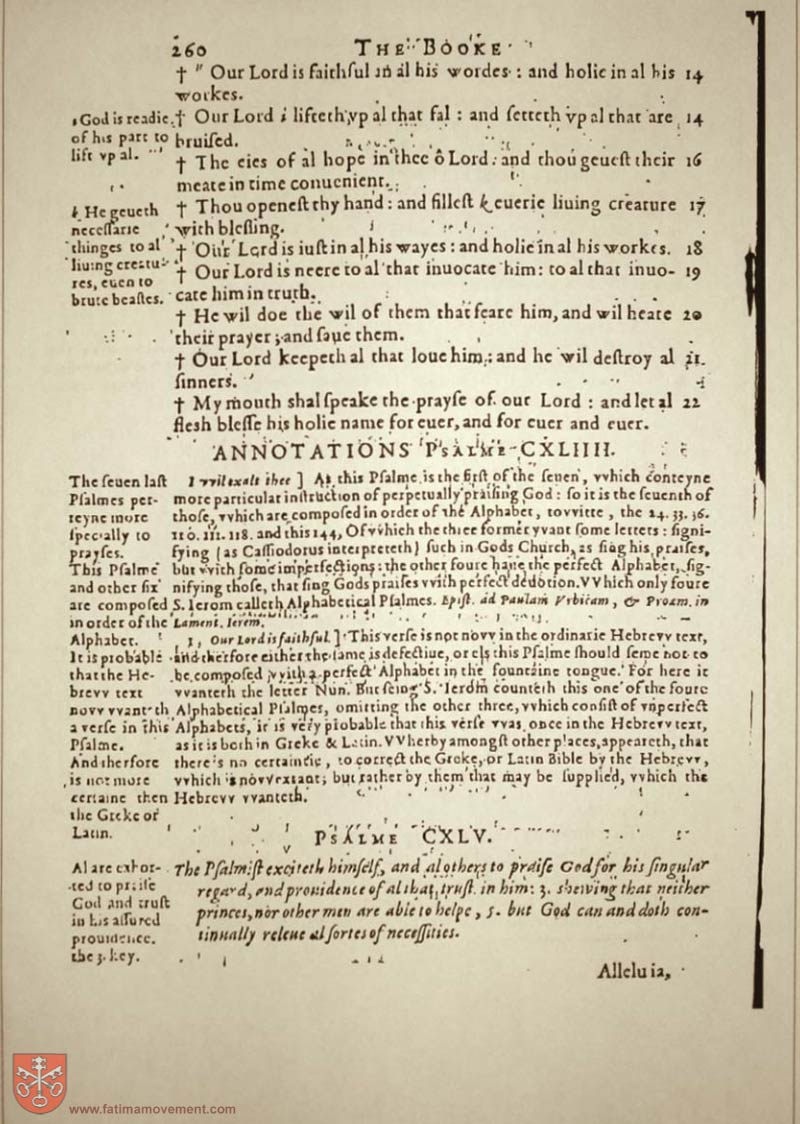 260 THE BOOKE
† " Our Lord is faithful in al his wordes : and holie in al his 14
workes.
† Our Lord i lifteth vp al that fal : and setteth vp al that are 14
bruised.
† The eies of al hope in thee ô Lord : and thou geuest their 16
meate in time conuenient.
† Thou openest thy hand : and fillest k euerie liuing creature 17
with blessing.
† Our Lord is iust in al his wayes : and holie in al his workes. 18
† Our Lord is neere to al that inuocate him : to al that inuo- 19
cate him in truth.
† He wil doe the wil of them that feare him, and wil heare 20
their prayer ; and saue them.
† Our Lord keepeth al that loue him : and he wil destroy al 21.
sinners.
† My mouth shal speake the prayse of our Lord : and let al 22
flesh blesse his holie name for euer, and for euer and euer.
i God is readie
of his part to
lift vp al.
k He geueth
necessarie
thinges to al
liuing creatu-
res, euen to
brute beastes.
ANNOTATIONS PSALME CXLIIII.
I vvil exalt thee ] As this Psalme is the first of the seuen, vvhich conteyne
more particular instruction of perpetually praising God : so it is the seuenth of
those, vvhich are composed in order of the Alphabet, tovvitte, the 24. 33. 36.
110. 111. 118. and this 144, Of vvhich the three former vvant some letters : signi-
fying (as Cassiodorus interpreteth) such in Gods Church, as sing his praises,
but vvith some imperfections : the other foure haue the perfect Alphabet, sig-
nifying those, that sing Gods praises vvith perfect deuotion. VVhich only foure
S. Ierom calleth Alphabetical Psalmes. Epist. ad Paulam Vrbicam, & Proæm. in
Lament. Ierem.
Our Lord is faithful. ] This verse is not novv in the ordinarie Hebrevv text,
and therfore either the same is defectiue, or els this Psalme should seme not to
be composed vvith a perfect Alphabet in the fountaine tongue. For here it
vvanteth the letter Nun. But seing S. Ierom counteth this one of the foure
Alphabetical Psalmes, omitting the other three, vvhich consist of vnperfect
Alphabets, it is very probable that this verse vvas once in the Hebrevv text,
as it is both in Greke & Latin. VVherby amongst other places, appeareth, that
there's no certaintie, to correct the Greke, or Latin Bible by the Hebrevv,
vvhich is novv extant; but rather by them that may be supplied, vvhich the
Hebrevv vvanteth.
The seuen last
Psalmes per-
teyne more
specially to
prayses.
This Psalme
and other six
are composed
in order of the
Alphabet.
It is probable
that the He-
brevv text
novv vvanteth
a verse in this
Psalme.
And therfore
is not more
certaine then
the Greke or
Latin.
PSALME CXLV.
The Psalmist exciteth himself, and al others to praise God for his singular
regard, and prouidence of al that trust in him : 3. shewing that neither
princes, nor other men are able to helpe, 5. but God can and doth con-
tinually releue al sortes of necessities.
Al are exhor-
ted to praise
God and trust
in his assured
prouidence.
the 3. key.
Alleluia,
www.fatimamovement.com